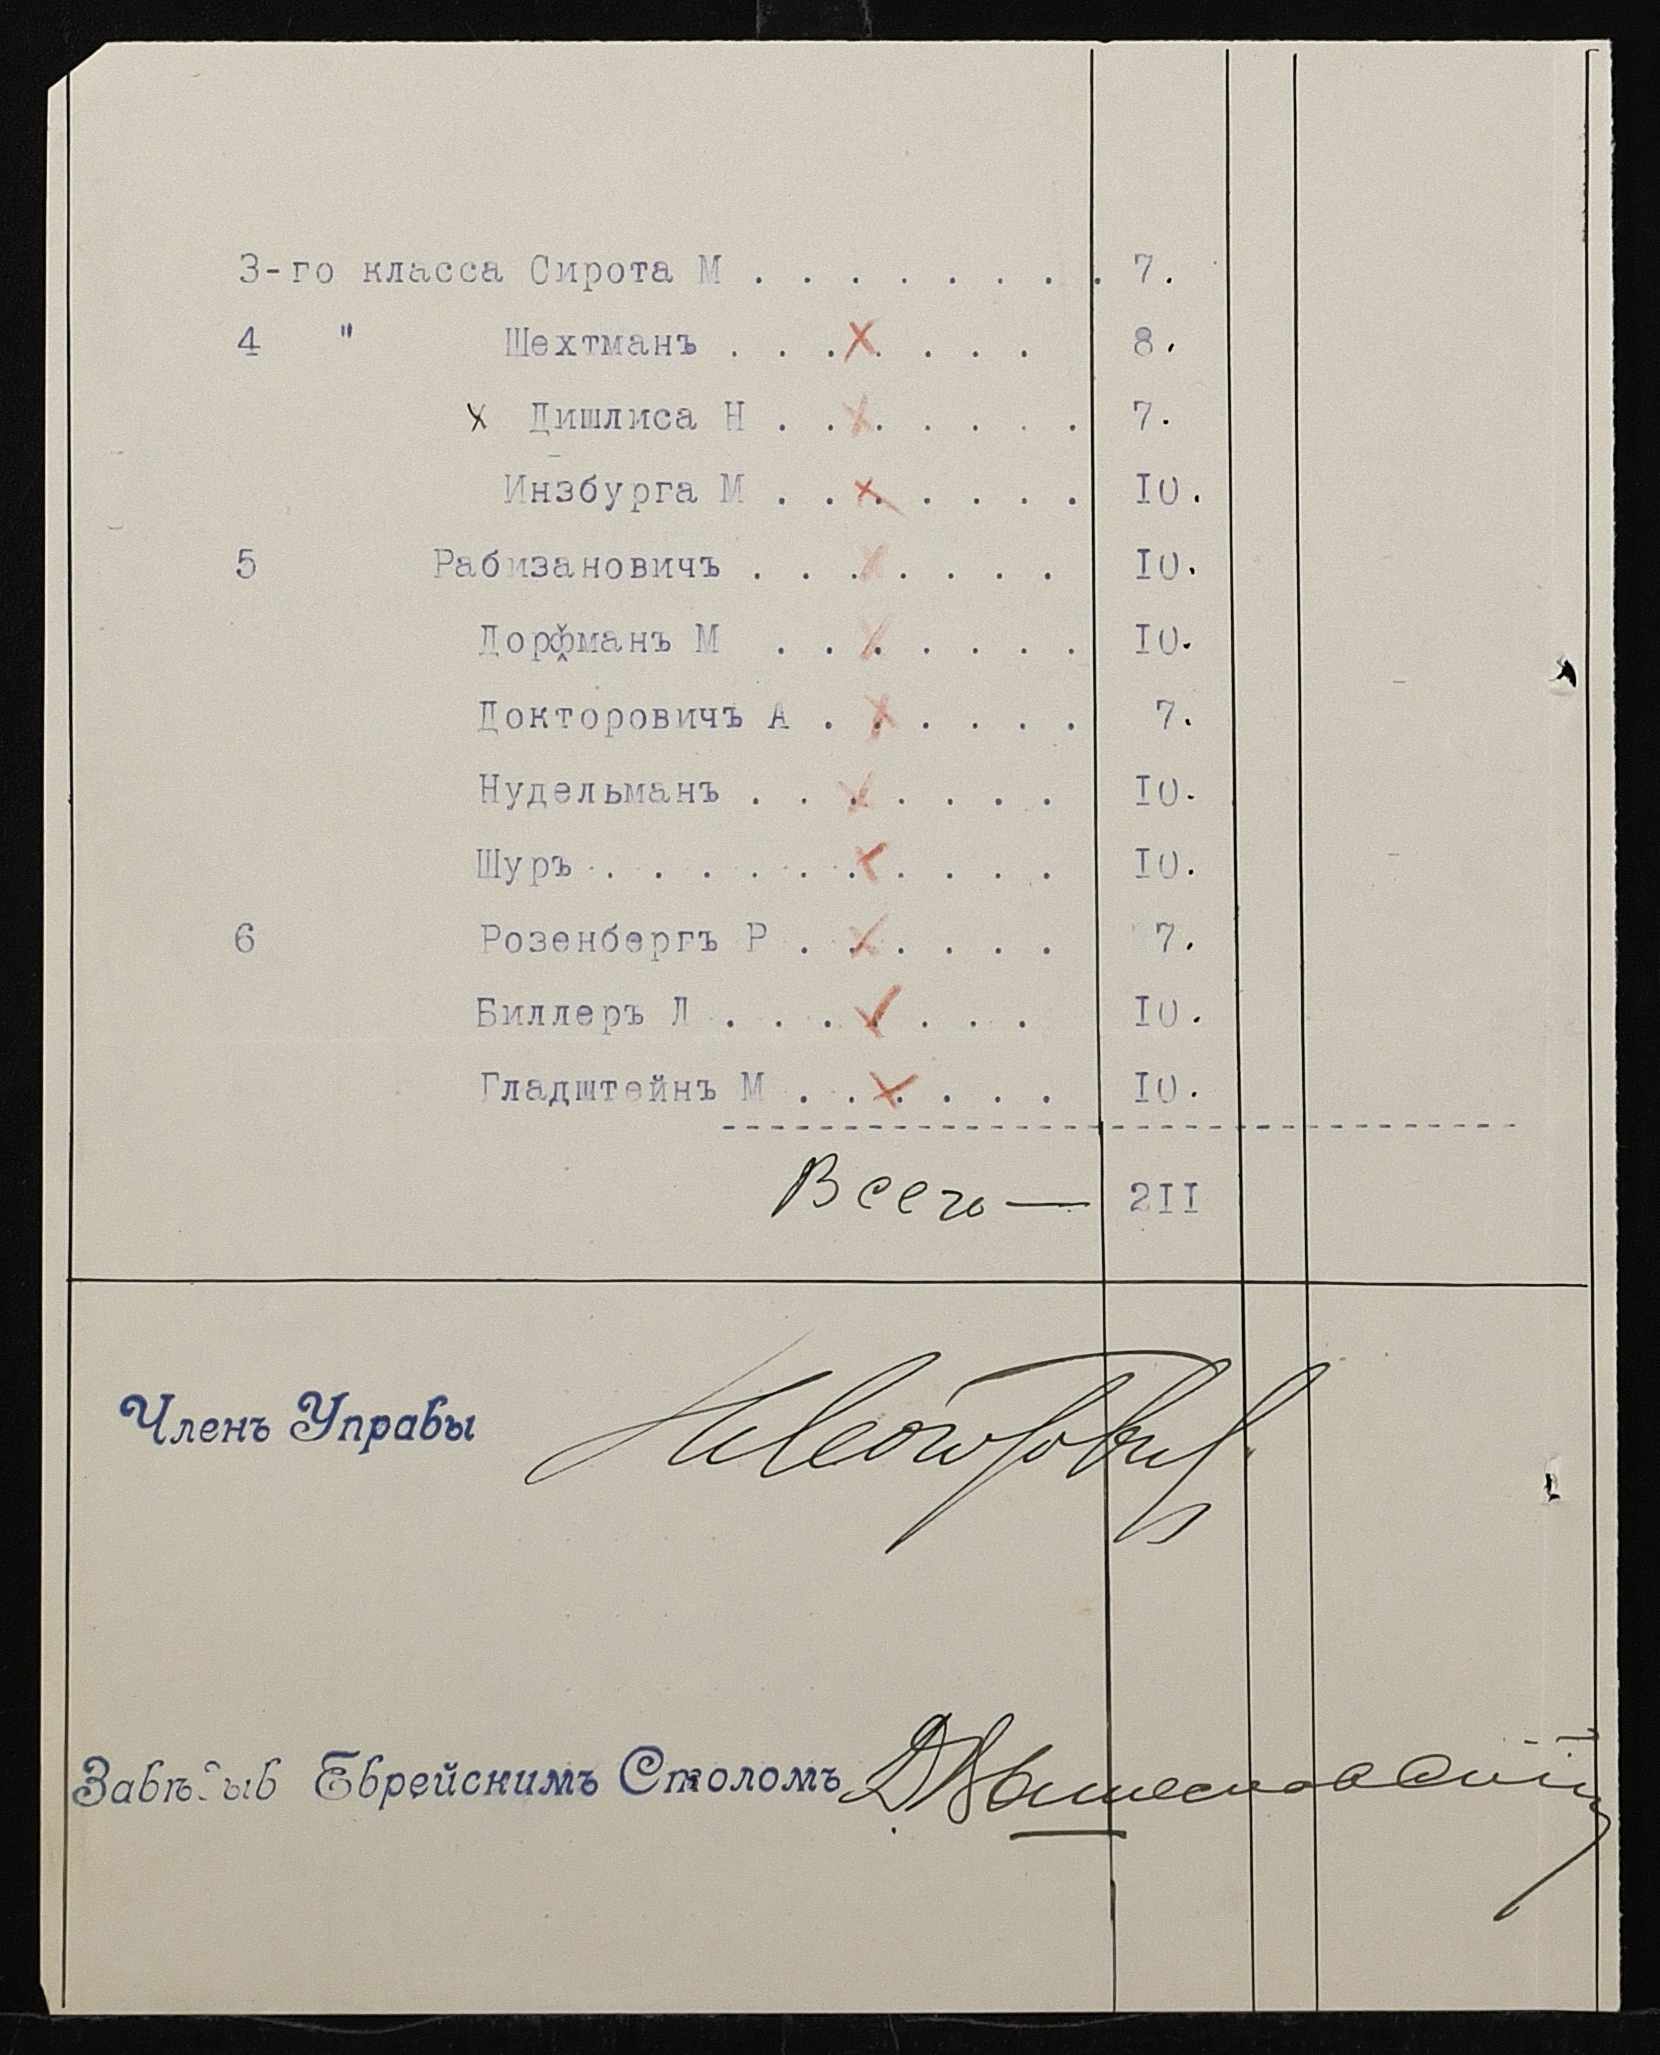 3-го класса Сирота М . . . . . . . . 7.
4 " Шехтманъ . . . . . . . 8.
х Дишлиса Н . . . . . . . 7.
Инзбурга М . . . . . . . I0.
5 Рабизановичъ . . . . . . . I0.
Дорфманъ М . . . . . . . I0.
Докторовичъ А . . . . . . 7.
Нудельманъ . . . . . . . I0.
Шуръ . . . . . . . . . . I0.
6 Розенбергъ Р . . . . . . 7.
Биллеръ Л . . . . . . . I0.
Гладштейнъ М . . . . . . I0.
Всего — 2II
Членъ Управы
Еврейскимъ Столомъ